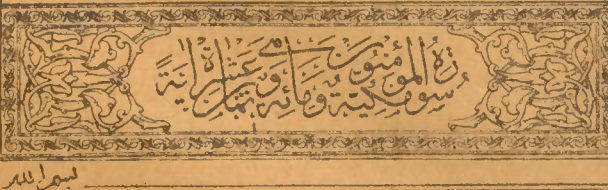 سُورَةُ المؤمنون مكيّة ومائة وثماني عشرة ايةً
بسم الله